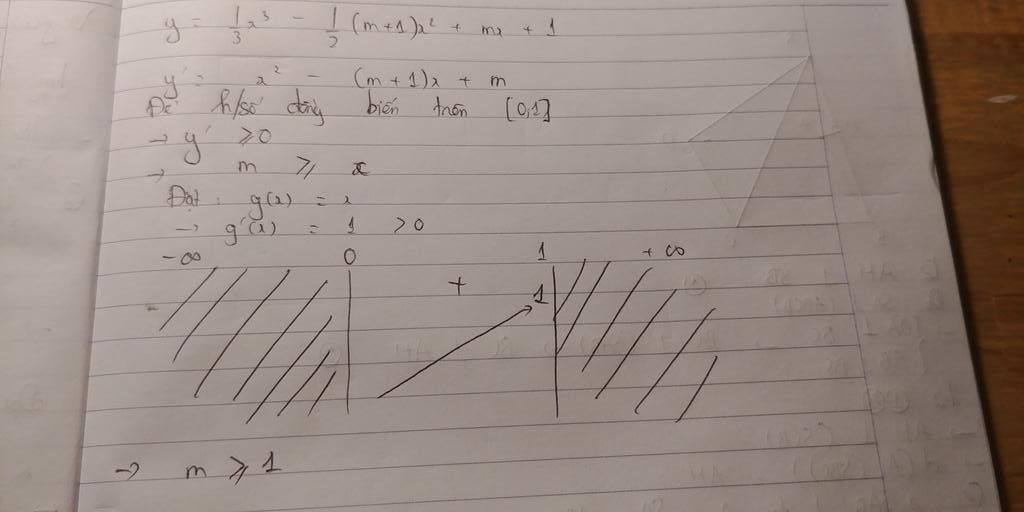 y = 1/3 x³ - 1/2 (m+1)x² + mx + 1
y' = x² - (m+1)x + m
Để h/số đồng biến trên [0,1]
→ y' ≥ 0
→ m ≥ x
Đặt: g(x) = x
→ g'(x) = 1 > 0
-∞ 0 1 +∞
+ 1
→ m ≥ 1